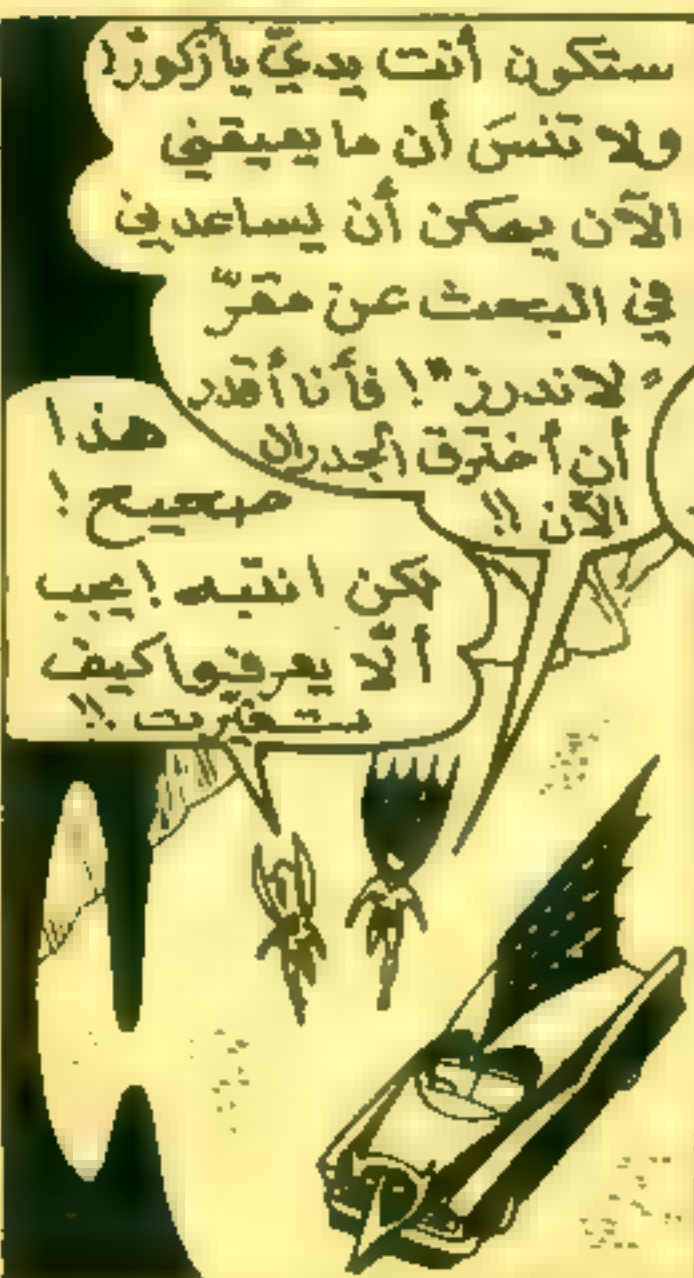 ستكون أنت يديّ يا زكور!
ولا تنسَ أن ما يعيقني
الآن يمكن أن يساعدني
في البحث عن مقرّ
"لاندرز"! فأنا أقدر
أن أخترق الجدران
الآن!!
هذا
صحيح!
لكن انتبه! يجب
ألّا يعرفوا كيف
ستغيّرت!!